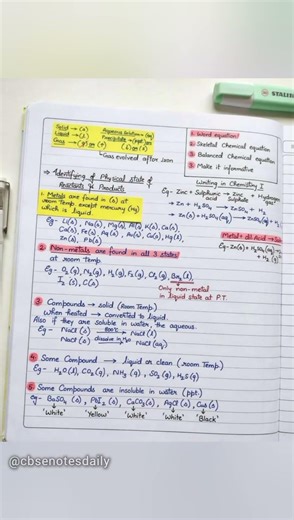 Solid → (s)
Liquid → (l)
Gas → (g) or (↑)
Aqueous solution → (aq)
Precipitate → (ppt) or
(↓) or (s)
Gas evolved after rxn
⇒ Identifying of Physical state of
Reactants & Products
1. Metals are found in (s) at
room Temp. except mercury (Hg)
which is liquid.
Eg - Li(s), Na(s), Mg(s), Al(s), K(s), Ca(s),
Cu(s), Fe(s), Ag(s), Au(s), Hg(l),
Zn(s), Pb(s)
2 Non-metals are found in all 3 states!
at room temp.
Eg - O₂(g), N₂(g), H₂(g), F₂(g), Cl₂(g), Br₂(l)
I₂(s), C(s)
Only non-metal
in liquid state at R.T.
3 Compounds → solid (Room Temp)
When heated → converted to liquid.
Also if they are soluble in water, the aqueous.
Eg - NaCl(s) 800°C → NaCl(l)
NaCl(s) dissolve in → NaCl(aq)
4. Some Compound → liquid or (room Temp)
Eg - H₂O(l), CO₂(g), NH₃(g), SO₂(g), H₂S(g)
5. Some Compounds are insoluble in water (ppt)
eg - BaSO₄(s), PbI₂(s), CaCO₃(s), AgCl(s), CuS(s)
'White' 'Yellow' 'White' 'White' 'Black'
1. Word equation
2. Skeletal Chemical equation
3. Balanced Chemical equation
4. Make it informative
Writing in Chemistry
Eg - Zinc + Sulphuric → Zinc + Hydrogen
acid Sulphate
→ Zn + H₂SO₄ → ZnSO₄ +
→ Zn(s) + H₂SO₄(aq) → ZnSO₄
Metal + dil Acid →
Eg - Zn(s) + H₂SO₄
+ H₂
STABIL
@cbsenotesdaily